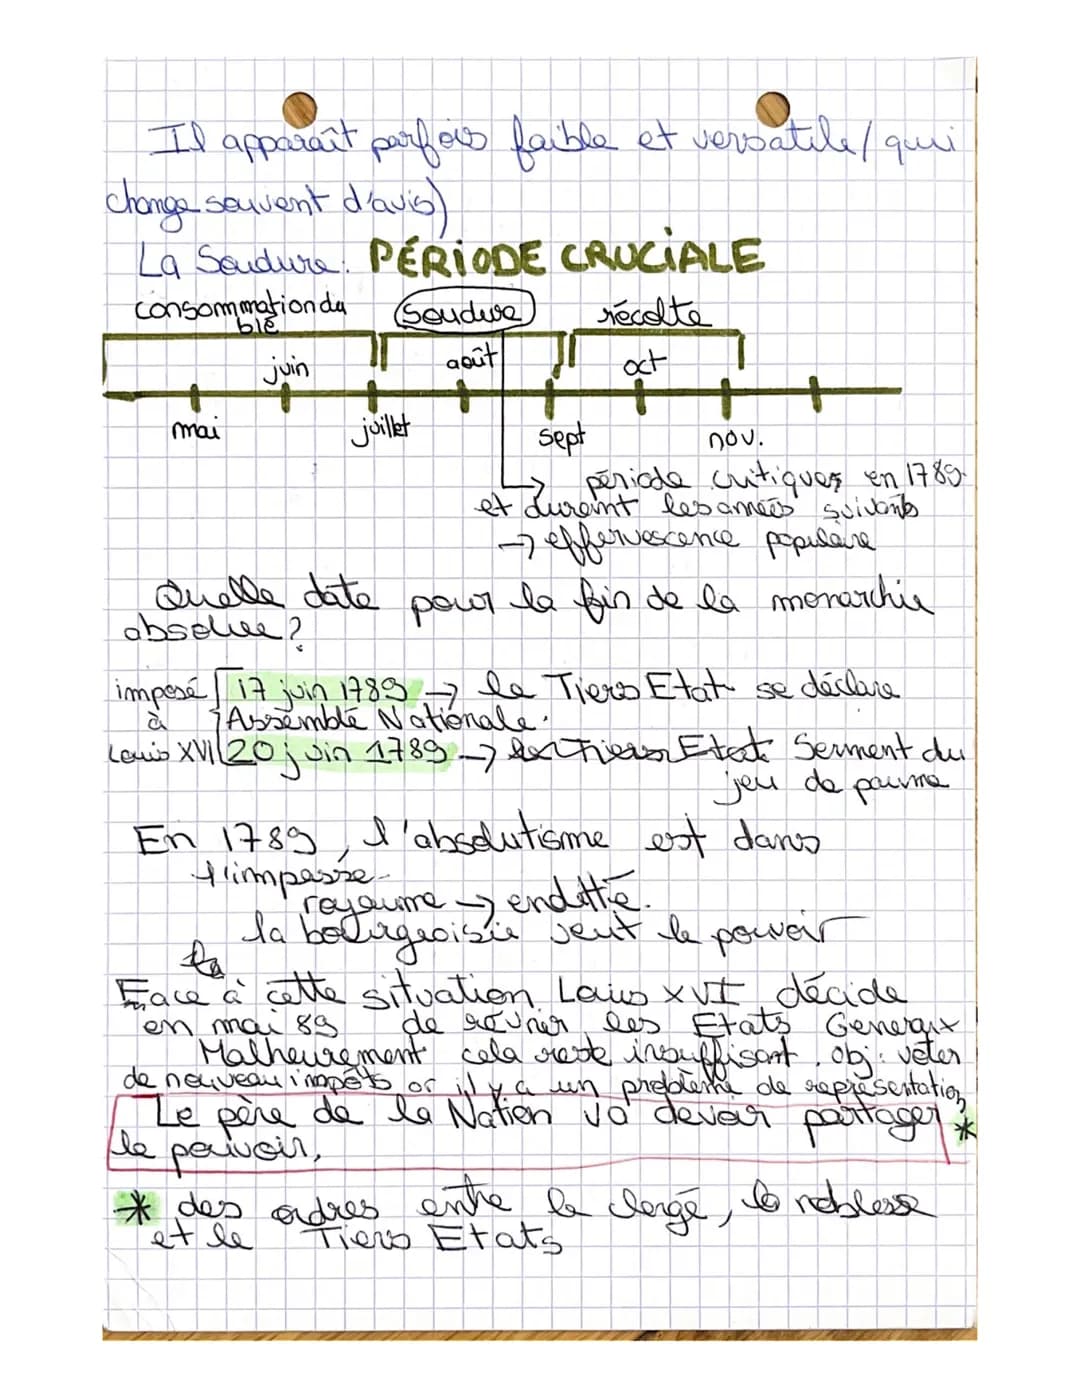 Il apparaît parfois faible et versatile/ qui
change souvent d'avis)
La Soudure: PÉRIODE CRUCIALE
consommation du
blé
soudure
récolte
juin
août
oct
mai
juillet
sept
nov.
période critiques en 1789
et durant les années suivants
→ effervescence populaire
Quelle date pour la fin de la monarchie
absolue?
imposé
à
Louis XVI
17 juin 1789 → le Tiers Etat se déclare
Assemblé Nationale.
20 juin 1789 → Tiers Etat Serment du
jeu de paume
En 1789, l'absolutisme est dans
l'impasse
royaume → endetté.
la bourgeoisie veut le pouvoir
Face à cette situation Louis XVI décide
en mai 89 de réunir les Etats Generaux
Malheurement cela reste insuffisant. obj: voter
de nouveau impôts or il y a un problème de représentation
Le père de la Nation va devoir partager *
le pouvoir.
* des ordres entre le clergé, la noblesse
et le Tiers Etats